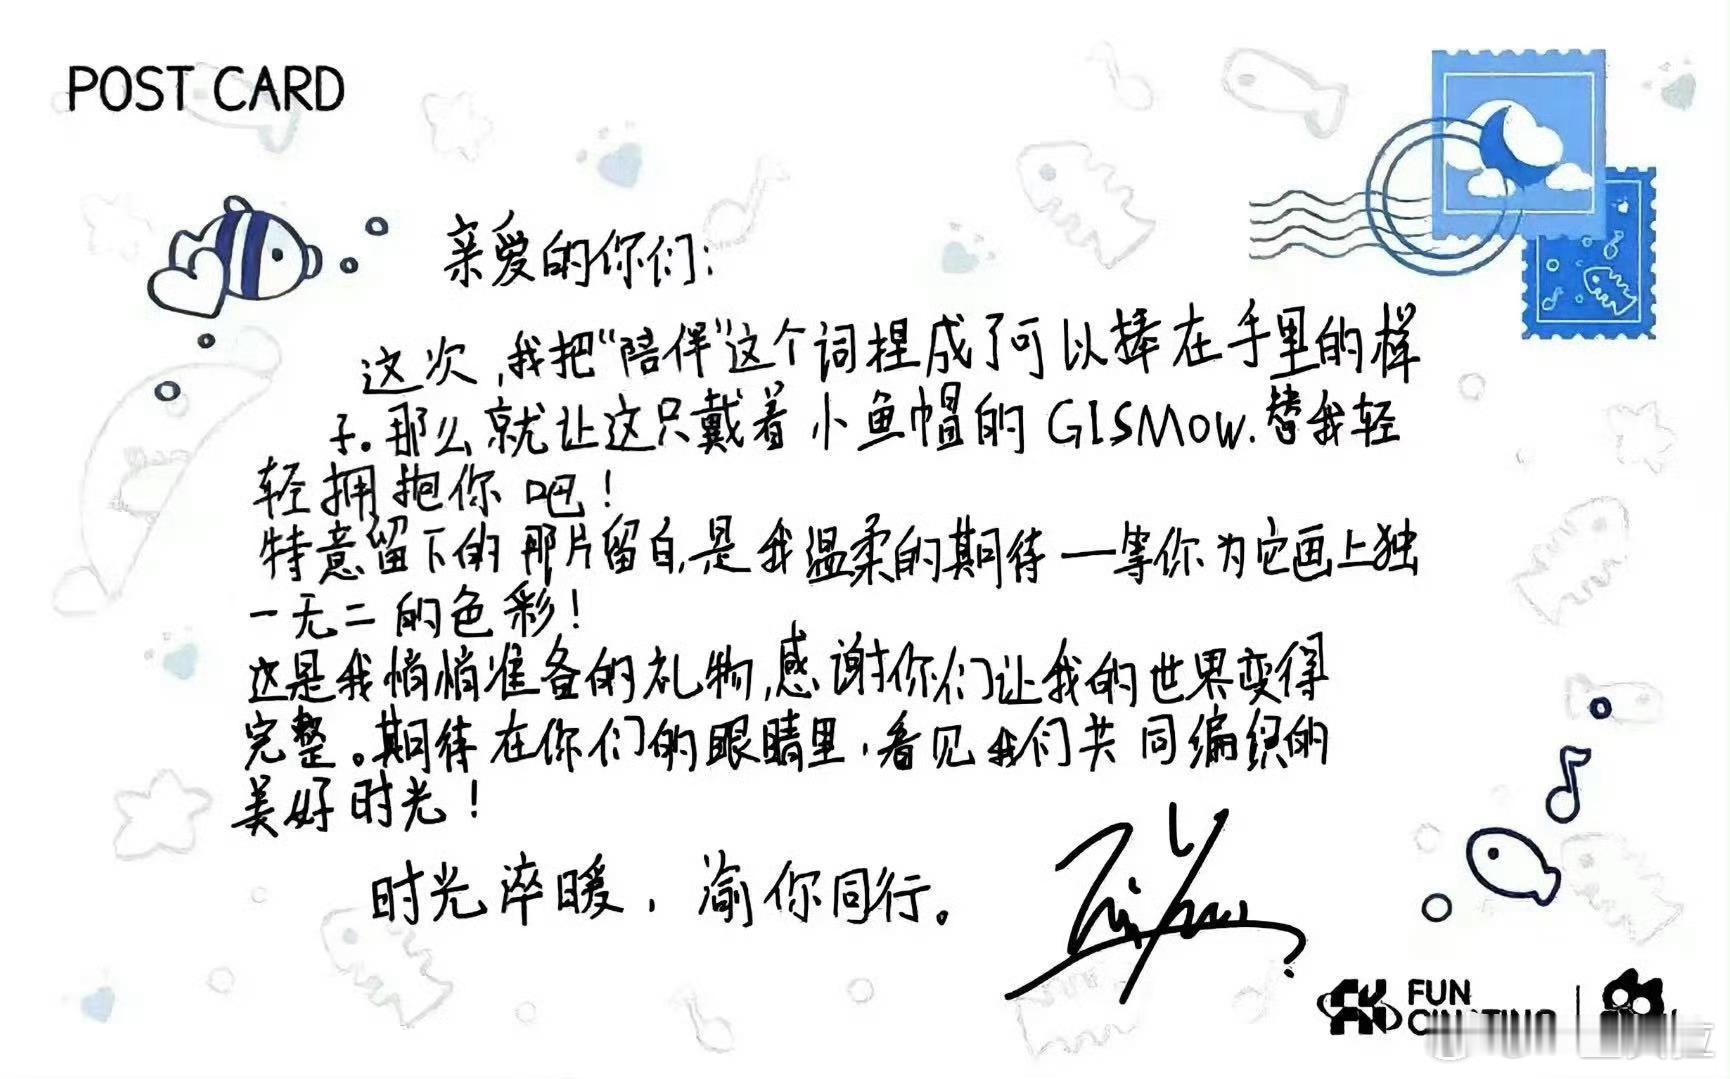 POST CARD
亲爱的你们：
这次，我把“陪伴”这个词捏成了可以捧在手里的样
子。那么就让这只戴着小鱼帽的GISMOW.替我轻
轻拥抱你吧！
特意留下的那片留白，是我温柔的期待一等你为它画上独
一无二的色彩！
这是我悄悄准备的礼物，感谢你们让我的世界变得
完整。期待在你们的眼睛里，看见我们共同编织的
美好时光！
时光淬暖，渝你同行。
FUN